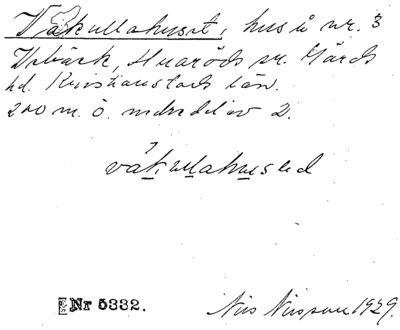 Våkullahuset, hus å nr. 3
Urbäck, Huaröds sn. Gärds
hd. Kristianstads län.
200 m. ö.ndra del av 2.
våkullahusəd
Nr 5332. Nils Nilsson 1929.